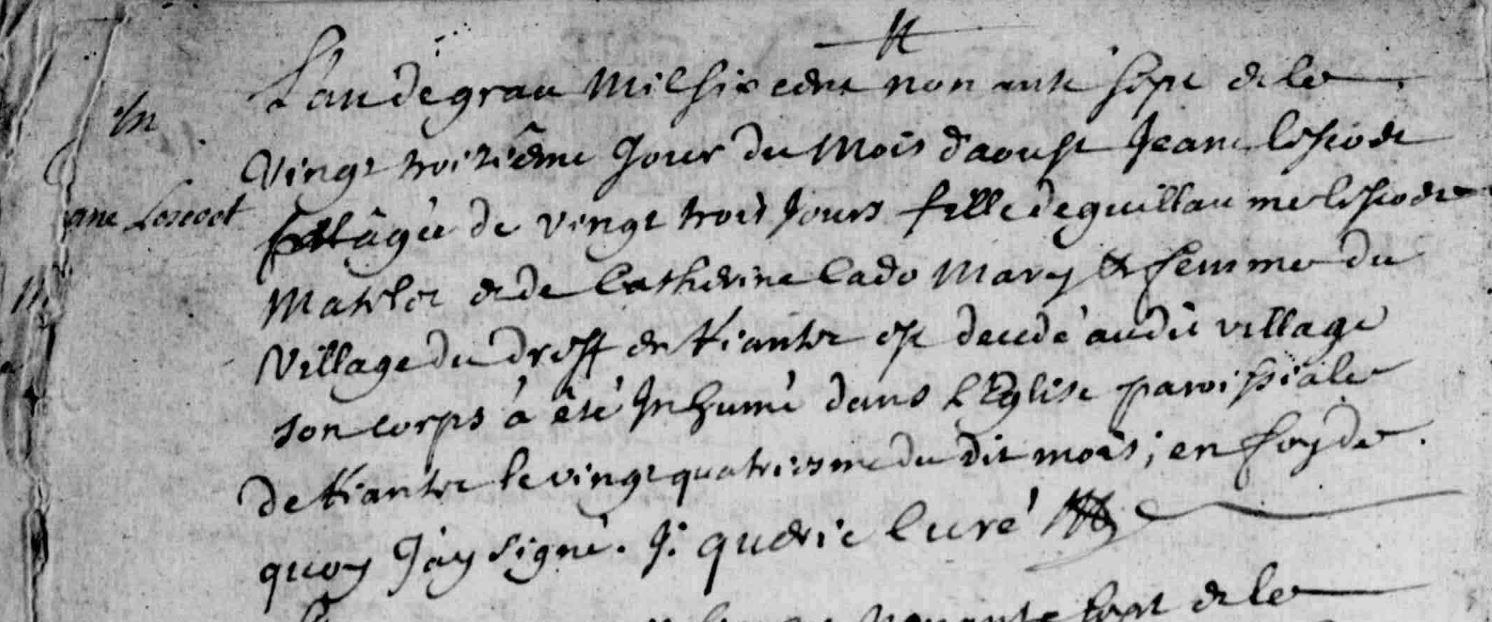 L'an de grace mil six cent nonante sept et le
In
vingt troizième jour du mois d'aoust Jeane lescode
ane Lescot
âgée de vingt trois jours fille de guillaume lescode
Matelot et de Catherine Cado Mary & femme du
Village du dreff en Riantec est decedé audit village
son corps a êté Inhumé dans l'Eglise paroissiale
de Riantec le vingt quatriesme du dit mois; en foy de
quoy j'ay signé. J: querie Curé
nonante sept et le